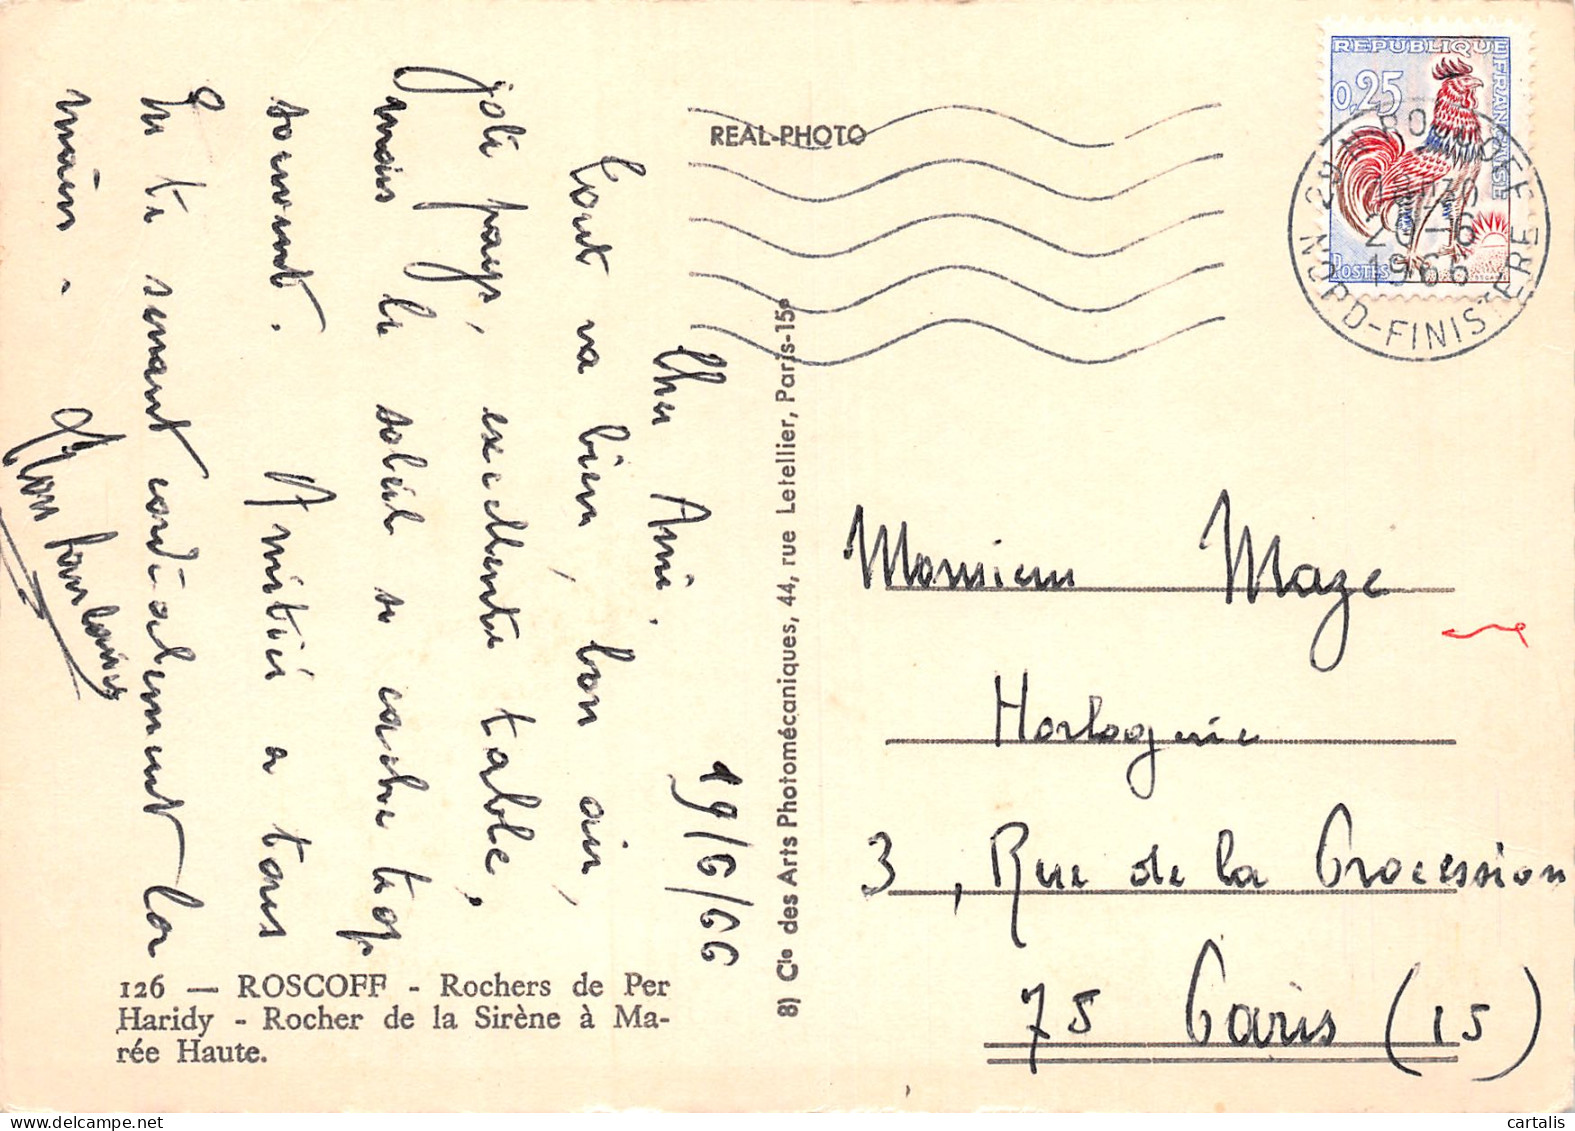 19/6/66
Cher Ami,
Tout va bien, bon air,
joli pays, excellente table,
mais le soleil se cache trop
souvent. Amitié a tous
En te serrant cordialement la
main.
126 — ROSCOFF - Rochers de Per
Haridy - Rocher de la Sirène à Ma-
rée Haute.
REAL-PHOTO
8) Cie des Arts Photomécaniques, 44, rue Letellier, Paris-15e
REPUBLIQUE FRANÇAISE
0,25
POSTES
ROSCOFF
20-6
1966
NORD-FINISTERE
Monsieur Maze
Horlogerie
3, Rue de la Procession
75 Paris (15)
cartalis